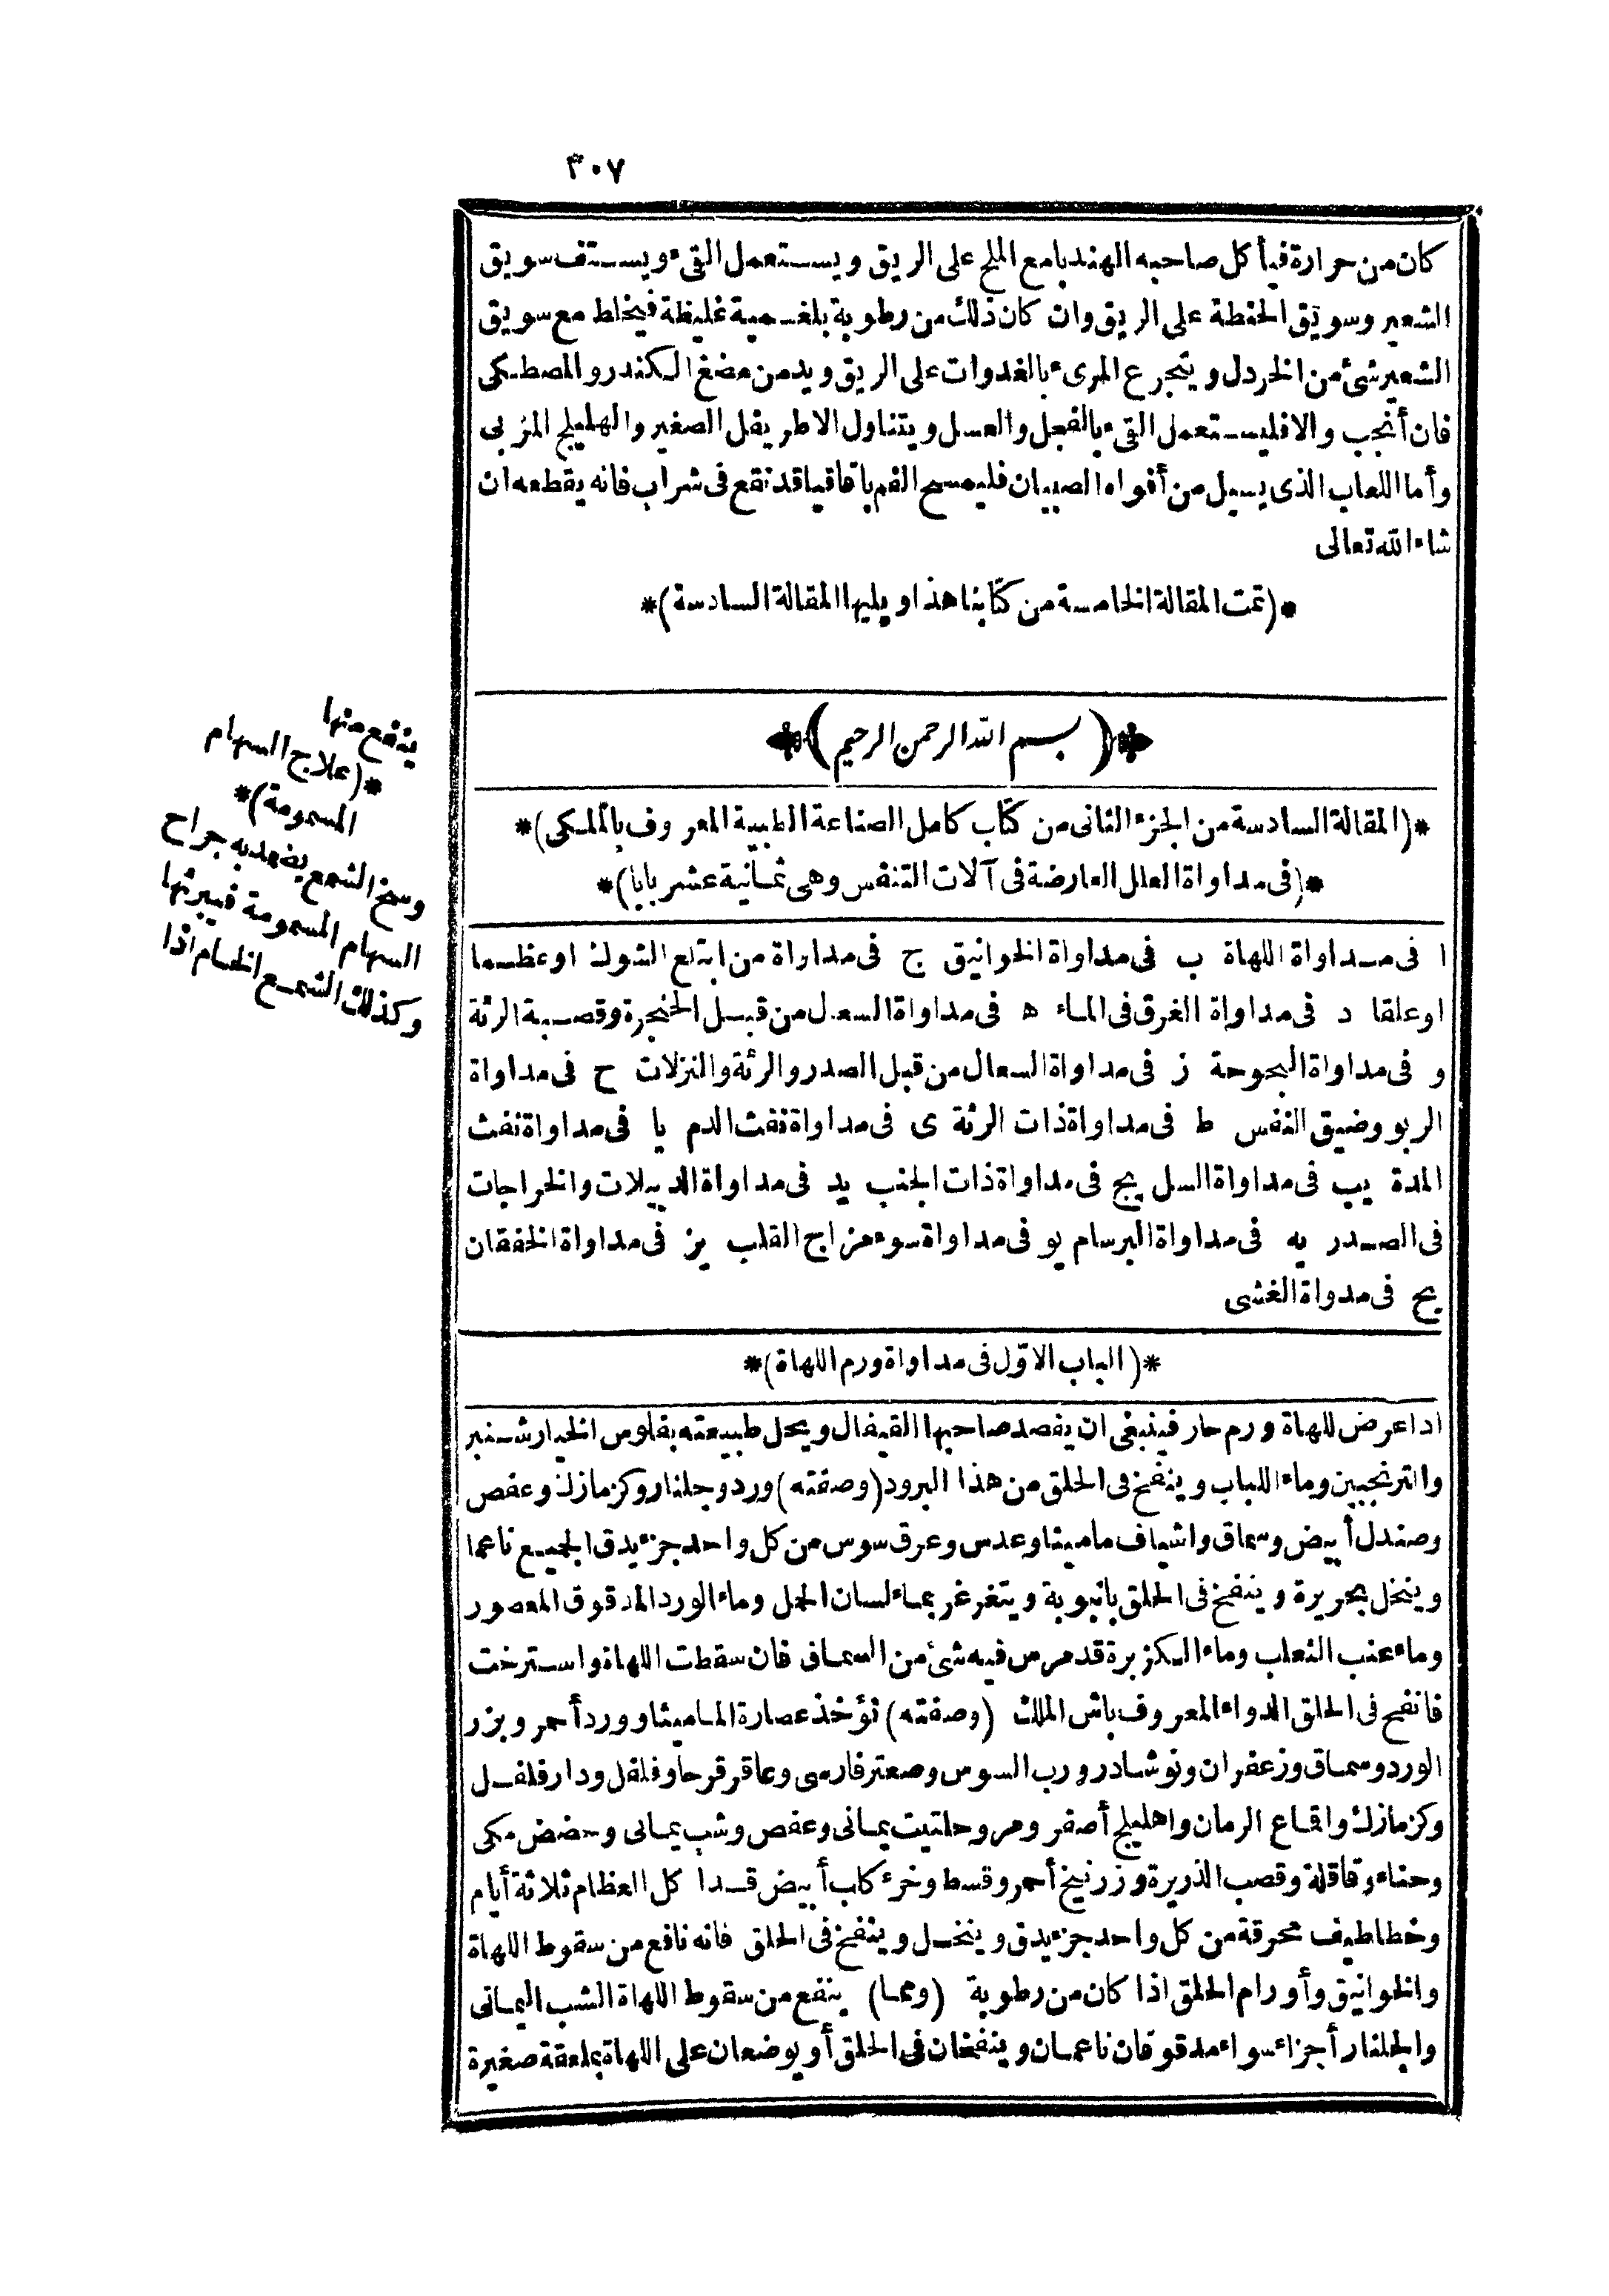 ٣٠٧
كان من حرارة فيأ كل صاحبه الهندبا مع الملح على الريق ويستعمل القىء ويستف سويق
الشعير وسويق الحنطة على الريق وان كان ذلك من رطوبة بلغمية غليظة فيخلط مع سويق
الشعير شئ من الخردل ويتجرع المرىء بالغدوات على الريق ويدمن مضغ الكندر والمصطكى
فان أنجب والا فليستعمل القىء بالفجل والعسل ويتناول الاطريفل الصغير والهليلج المربى
وأما اللعاب الذى يسيل من أفواه الصبيان فليمسح الفم باقاقيا قد نقع فى شراب فانه يقطعه ان
شاء الله تعالى
*(تمت المقالة الخامسة من كتابنا هذا ويليها المقالة السادسة)*
(بسم الله الرحمن الرحيم)
*(المقالة السادسة من الجزء الثانى من كتاب كامل الصناعة الطبية المعروف بالملكى)*
*(فى مداواة العلل العارضة فى آلات التنفس وهى ثمانية عشر بابا)*
ا فى مداواة اللهاة ب فى مداواة الخوانيق ج فى مداواة من ابتلع الشوك اوعظما
اوعلقا د فى مداواة الغرق فى الماء ه فى مداواة السعال من قبل الحنجرة وقصبة الرئة
و فى مداواة البحوحة ز فى مداواة السعال من قبل الصدر والرئة والنزلات ح فى مداواة
الربو وضيق النفس ط فى مداواة ذات الرئة ى فى مداواة نفث الدم يا فى مداواة نفث
المدة يب فى مداواة السل يج فى مداواة ذات الجنب يد فى مداواة الدبيلات والخراجات
فى الصدر يه فى مداواة البرسام يو فى مداواة سوء مزاج القلب يز فى مداواة الخفقان
يح فى مدواة الغشى
*(الباب الاوّل فى مداواة ورم اللهاة)*
اذا عرض للهاة ورم حار فينبغى ان يفصد صاحبها القيفال ويحل طبيعته بفلوس الخيارشنبر
والترنجبين وماء اللباب وينفخ فى الحلق من هذا البرود (وصفته) ورد وجلنار وكزمازك وعفص
وصندل أبيض وسماق واشياف ماميثا وعدس وعرق سوس من كل واحد جزء يدق الجميع ناعما
وينخل بحريرة وينفخ فى الحلق بانبوبة ويتغرغر بماء لسان الحمل وماء الورد المدقوق المعصور
وماء عنب الثعلب وماء الكزبرة قد مرس فيه شئ من السماق فان سقطت اللهاة واسترخت
فانفخ فى الحلق الدواء المعروف باش الملك (وصفته) تؤخذ عصارة الماميثا وورد أحمر وبزر
الورد وسماق وزعفران ونوشادر ورب السوس وصعتر فارسى وعاقر قرحا وفلفل ودارفلفل
وكزمازك واقماع الرمان واهليلج أصفر ومر وحلتيت يمانى وعفص وشب يمانى وحضض مكى
وحناء وقاقلة وقصب الذريرة وزرنيخ أحمر وقسط وخرء كاب أبيض قد ا كل العظام ثلاثة أيام
وخطاطيف محرقة من كل واحد جزء يدق وينخل وينفخ فى الحلق فانه نافع من سقوط اللهاة
والخوانيق وأورام الحلق اذا كان من رطوبة (ومما) ينفع من سقوط اللهاة الشب اليمانى
والجلنار أجزاء سواء مدقوقان ناعمان وينفخان فى الحلق أو يوضعان على اللهاة بملعقة صغيرة
ينفع منها
*(علاج السهام
المسمومة)*
وسخ الشمع يضمد به جراح
السهام المسمومة فيبرئها
وكذلك الشمع الخام اذا